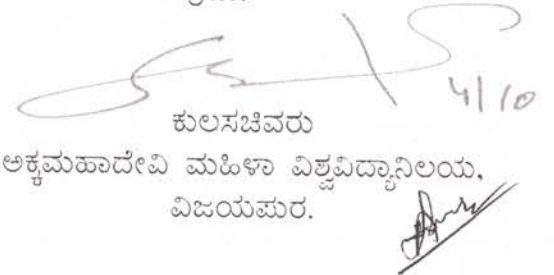 4/10
ಕುಲಸಚಿವರು
ಅಕ್ಕಮಹಾದೇವಿ ಮಹಿಳಾ ವಿಶ್ವವಿದ್ಯಾನಿಲಯ,
ವಿಜಯಪುರ.